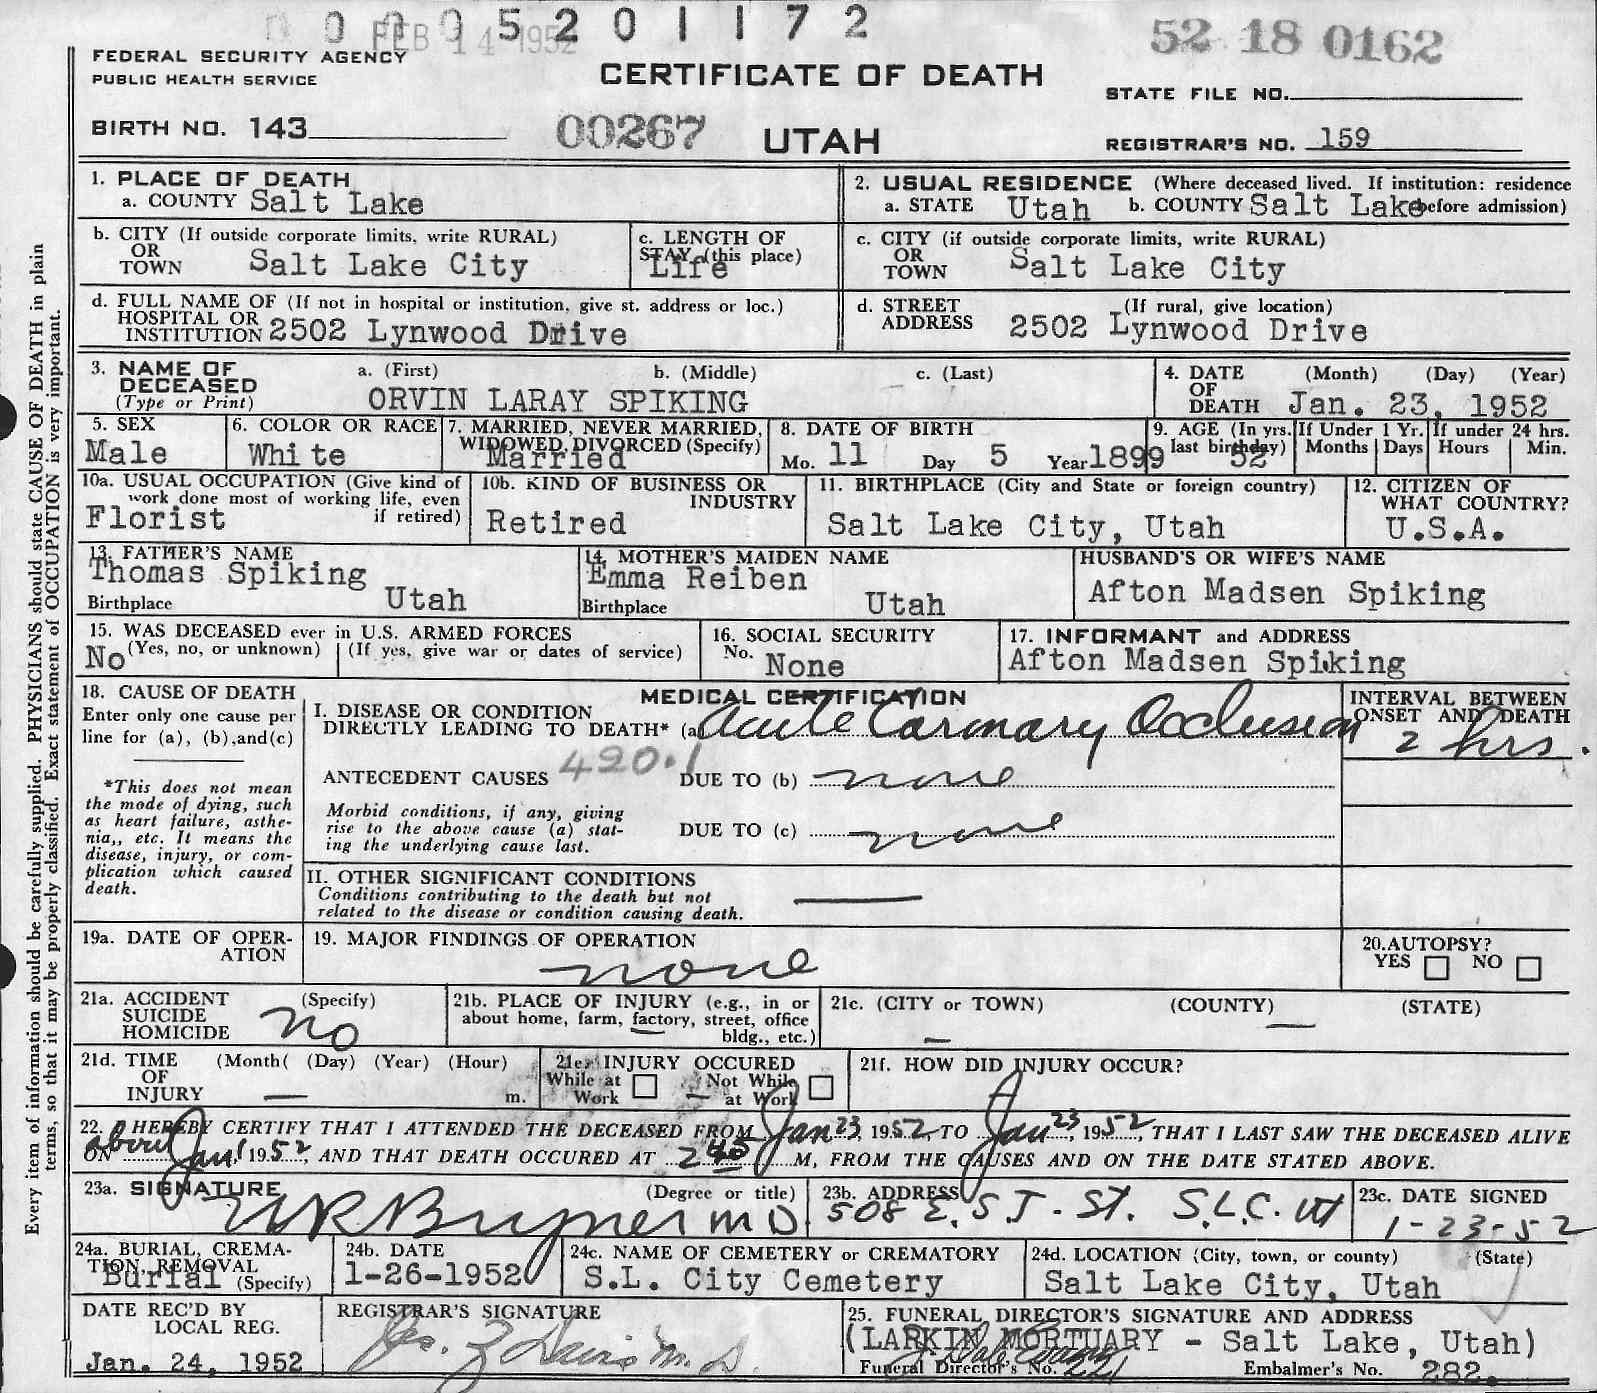 0 0 0 5 2 0 1 1 7 2
FEB 14 1952
52 18 0162
FEDERAL SECURITY AGENCY
PUBLIC HEALTH SERVICE
CERTIFICATE OF DEATH
STATE FILE NO.
BIRTH NO. 143
00267
UTAH
REGISTRAR'S NO. 159
Every item of information should be carefully supplied. PHYSICIANS should state CAUSE OF DEATH in plain
terms, so that it may be properly classified. Exact statement of OCCUPATION is very important.
1. PLACE OF DEATH
a. COUNTY Salt Lake
2. USUAL RESIDENCE (Where deceased lived. If institution: residence
a. STATE Utah b. COUNTY Salt Lake before admission)
b. CITY (If outside corporate limits, write RURAL)
OR
TOWN Salt Lake City
c. LENGTH OF
STAY (this place)
Life
c. CITY (if outside corporate limits, write RURAL)
OR
TOWN Salt Lake City
d. FULL NAME OF (If not in hospital or institution, give st. address or loc.)
HOSPITAL OR
INSTITUTION 2502 Lynwood Drive
d. STREET (If rural, give location)
ADDRESS 2502 Lynwood Drive
3. NAME OF a. (First) b. (Middle) c. (Last)
DECEASED
(Type or Print) ORVIN LARAY SPIKING
4. DATE (Month) (Day) (Year)
OF
DEATH Jan. 23, 1952
5. SEX
Male
6. COLOR OR RACE
White
7. MARRIED, NEVER MARRIED,
WIDOWED, DIVORCED (Specify)
Married
8. DATE OF BIRTH
Mo. 11 Day 5 Year 1899
9. AGE (In yrs.
last birthday) 52
If Under 1 Yr.
Months Days
If under 24 hrs.
Hours Min.
10a. USUAL OCCUPATION (Give kind of
work done most of working life, even
if retired)
Florist
10b. KIND OF BUSINESS OR
INDUSTRY
Retired
11. BIRTHPLACE (City and State or foreign country)
Salt Lake City, Utah
12. CITIZEN OF
WHAT COUNTRY?
U.S.A.
13. FATHER'S NAME
Thomas Spiking
Birthplace Utah
14. MOTHER'S MAIDEN NAME
Emma Reiben
Birthplace Utah
HUSBAND'S OR WIFE'S NAME
Afton Madsen Spiking
15. WAS DECEASED ever in U.S. ARMED FORCES
No (Yes, no, or unknown) (If yes, give war or dates of service)
16. SOCIAL SECURITY
No. None
17. INFORMANT and ADDRESS
Afton Madsen Spiking
18. CAUSE OF DEATH
Enter only one cause per
line for (a), (b),and(c)
*This does not mean
the mode of dying, such
as heart failure, asthe-
nia,, etc. It means the
disease, injury, or com-
plication which caused
death.
MEDICAL CERTIFICATION
I. DISEASE OR CONDITION
DIRECTLY LEADING TO DEATH* (a) Acute Coronary Occlusion
INTERVAL BETWEEN
ONSET AND DEATH
2 hrs.
ANTECEDENT CAUSES 420.1 DUE TO (b) none
Morbid conditions, if any, giving
rise to the above cause (a) stat-
ing the underlying cause last.
DUE TO (c) none
II. OTHER SIGNIFICANT CONDITIONS
Conditions contributing to the death but not
related to the disease or condition causing death.
19a. DATE OF OPER-
ATION
19. MAJOR FINDINGS OF OPERATION
none
20. AUTOPSY?
YES NO
21a. ACCIDENT (Specify)
SUICIDE
HOMICIDE no
21b. PLACE OF INJURY (e.g., in or
about home, farm, factory, street, office
bldg., etc.)
21c. (CITY or TOWN) (COUNTY) (STATE)
21d. TIME (Month( (Day) (Year) (Hour)
OF
INJURY m.
21e. INJURY OCCURED
While at Not While
Work at Work
21f. HOW DID INJURY OCCUR?
22. I HEREBY CERTIFY THAT I ATTENDED THE DECEASED FROM Jan 23, 1952, TO Jan 23, 1952, THAT I LAST SAW THE DECEASED ALIVE
ON about Jan 1 1952, AND THAT DEATH OCCURED AT 2 45 M, FROM THE CAUSES AND ON THE DATE STATED ABOVE.
23a. SIGNATURE (Degree or title)
M D
23b. ADDRESS
508 E. S T. St. S.L.C. Ut
23c. DATE SIGNED
1-23-52
24a. BURIAL, CREMA-
TION, REMOVAL
Burial (Specify)
24b. DATE
1-26-1952
24c. NAME OF CEMETERY or CREMATORY
S.L. City Cemetery
24d. LOCATION (City, town, or county) (State)
Salt Lake City, Utah
DATE REC'D BY
LOCAL REG.
Jan. 24, 1952
REGISTRAR'S SIGNATURE
Geo. Z Davis M. D.
25. FUNERAL DIRECTOR'S SIGNATURE AND ADDRESS
(LARKIN MORTUARY - Salt Lake, Utah)
Funeral Director's No. 221 Embalmer's No. 282.